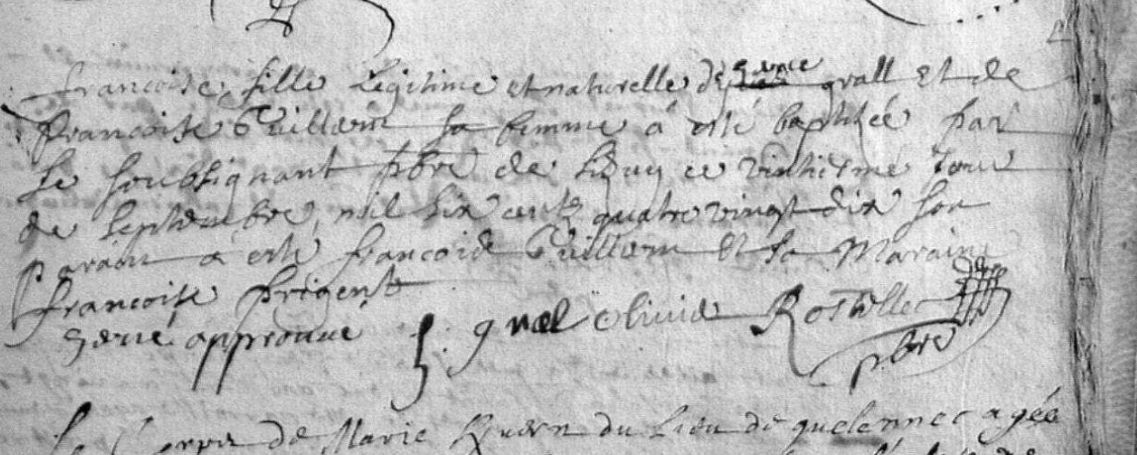 francoise fille Legitime et naturelle de grall et de
francoise Guillerm sa femme a esté baptizée par
Le soubsignant pbre de ce vintiesme Jour
de Septembre mil six cents quatre vingt dix son
parain a esté francois Guillerm Et sa Maraine
francoise prigent
hervé approuve gral olivié Rostellec
pbre
Le Corps de Marie du Lieu de quelennec agée